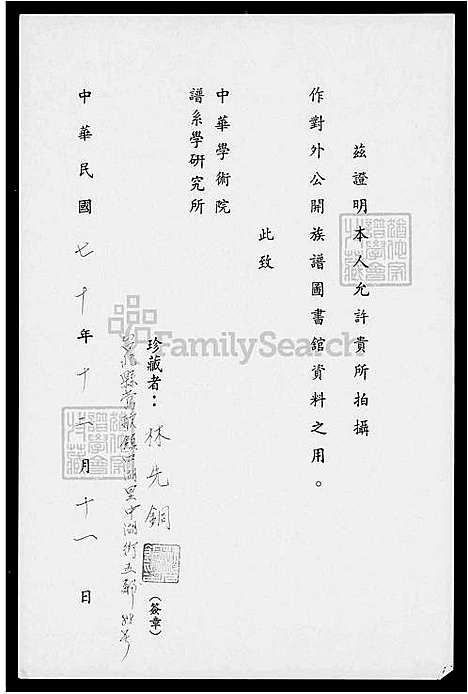 茲證明本人允許貴所拍攝
作對外公開族譜圖書館資料之用。
此致
中華學術院
譜系學研究所
珍藏者：林先銅（簽章）
縣鶯歌鎮中湖里中湖街五鄰
中華民國七十年十二月十一日
FamilySearch